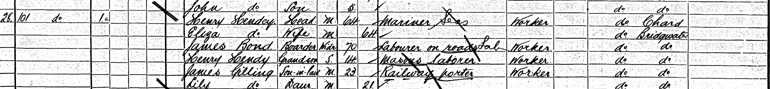 John do Son 6
26 101 do 1 Henry Henday Head M 64 Mariner Seas Worker do Chard
Eliza do Wife M 64 do Bridgwater
James Bond Boarder Widr 70 Labourer on roads Lab Worker do do
Henry Hendy Grandson S 14 laborer Worker do do
James Son-in-law M 23 Railway porter Worker do do
do Daur M 21 do do